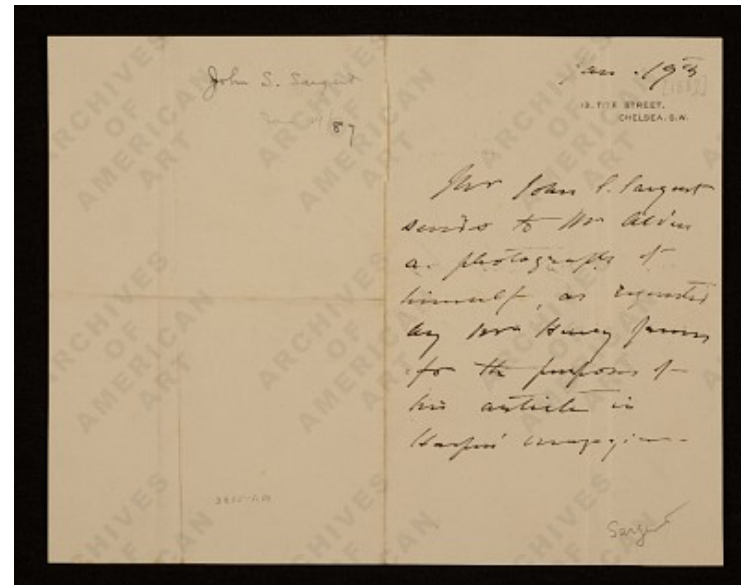 John S. Sargent
87
Jan. 19th
[1887]
13, TITE STREET,
CHELSEA, S.W.
Mr John S. Sargent
sends to Mr Alden
a photograph of
himself, as requested
by Mr Henry James
for the purposes of
his article in
Harpers' magazine
Sargent
ARCHIVES
OF
AMERICAN
ART